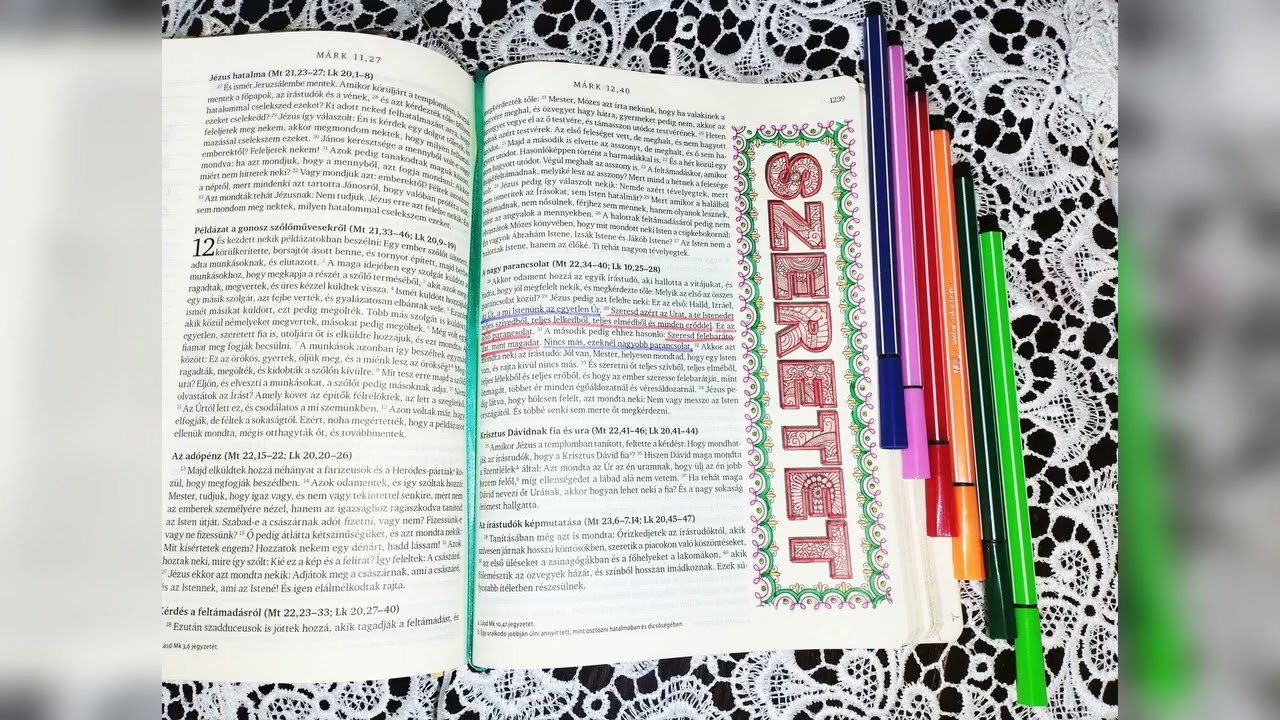 MÁRK 11,27
Jézus hatalma (Mt 21,23–27; Lk 20,1–8)
27 És ismét Jeruzsálembe mentek. Amikor körüljárt a templomban,
mentek a főpapok, az írástudók és a vének, 28 és azt kérdezték tőle:
hatalommal cselekszed ezeket? Ki adott neked felhatalmazást arra, hogy
ezeket cselekedd? 29 Jézus így válaszolt: Én is kérdek egy dolgot tőletek,
feleljetek meg nekem, akkor megmondom nektek, hogy milyen
mazással cselekszem ezeket. 30 János keresztsége a mennyből való-e vagy
emberektől? Feleljetek nekem! 31 Azok pedig tanakodtak maguk között
mondva: ha azt mondjuk, hogy a mennyből, azt fogja mondani: Akkor
miért nem hittetek neki? 32 Vagy mondjuk azt: emberektől? Féltek azonban
a néptől, mert mindenki azt tartotta Jánosról, hogy valóban próféta volt.
33 Azt mondták tehát Jézusnak: Nem tudjuk. Jézus erre azt felelte nekik: Én
sem mondom meg nektek, milyen hatalommal cselekszem ezeket.
Példázat a gonosz szőlőművesekről (Mt 21,33–46; Lk 20,9–19)
12 És kezdett nekik példázatokban beszélni: Egy ember szőlőt ültetett,
körülkerítette, borsajtót ásott benne, és tornyot épített, majd bé
adta munkásoknak, és elutazott. 2 A maga idejében egy szolgát küldött a
munkásokhoz, hogy megkapja a részét a szőlő terméséből, 3 akik azt
ragadtak, megverték, és üres kézzel küldték vissza. 4 Ismét küldött hozzájuk
egy másik szolgát, azt fejbe verték, és gyalázatosan elbántak vele. 5
ismét másikat küldött, ezt pedig megölték. Több más szolgát is küldött,
akik közül némelyeket megvertek, másokat pedig megöltek. 6 Még volt
egyetlen, szeretett fia, is, utoljára őt is elküldte hozzájuk, és ezt mondta:
fiamat meg fogják becsülni. 7 A munkások azonban így beszéltek egymás
között: Ez az örökös, gyertek, öljük meg, és a mienk lesz az örökség! 8 Meg
ragadták, megölték, és kidobták a szőlőn kívülre. 9 Mit tesz erre majd a szőlő
ura? Eljön, és elveszti a munkásokat, a szőlőt pedig másoknak adja.
olvastátok az Írást? Amely követ az építők félrelöktek, az lett a szegletkő.
11 Az Úrtól lett ez, és csodálatos a mi szemünkben. 12 Azon voltak már, hogy
elfogják, de féltek a sokaságtól. Ezért, noha megértették, hogy a példázatot
ellenük mondta, mégis otthagyták őt, és továbbmentek.
Az adópénz (Mt 22,15–22; Lk 20,20–26)
13 Majd elküldtek hozzá néhányat a farizeusok és a Heródes-pártiak kö-
zül, hogy megfogják beszédben. 14 Azok odamentek, és így szóltak hozzá:
Mester, tudjuk, hogy igaz vagy, és nem vagy tekintettel senkire, mert nem
az emberek személyére nézel, hanem az igazsághoz ragaszkodva tanítod
az Isten útját. Szabad-e a császárnak adót fizetni, vagy nem? Fizessünk-e
vagy ne fizessünk? 15 Ő pedig átlátta kétszínűségüket, és azt mondta nekik:
Mit kísértetek engem? Hozzatok nekem egy dénárt, hadd lássam! 16 Azok
hoztak neki, mire így szólt: Kié ez a kép és a felirat? Így feleltek: A császáré.
17 Jézus ekkor azt mondta nekik: Adjátok meg a császárnak, ami a császáré,
és az Istennek, ami az Istené! És igen elálmélkodtak rajta.
Kérdés a feltámadásról (Mt 22,23–33; Lk 20,27–40)
18 Ezután szadduceusok is jöttek hozzá, akik tagadják a feltámadást, és
Lásd Mk 3,6 jegyzetét.
MÁRK 12,40
1239
megkérdezték tőle: 19 Mester, Mózes azt írta nekünk, hogy ha valakinek a
testvére meghal, és özvegyet hagy hátra, gyermeket pedig nem, akkor az
özvegyet vegye el az ő testvére, és támasszon utódot testvérének. 20 Heten
voltak azért testvérek. Az első feleséget vett, de meghalt, és nem hagyott
utódot. 21 Majd a második is elvette az asszonyt, de meghalt, és ő sem ha-
gyott utódot. Hasonlóképpen történt a harmadikkal is. 22 És a hét közül egy
sem hagyott utódot. Végül meghalt az asszony is. 23 A feltámadáskor, amikor
majd feltámadnak, melyiké lesz az asszony? Mert mind a hétnek a felesége
volt. 24 Jézus pedig így válaszolt nekik: Nemde azért tévelyegtek, mert
nem ismeritek az Írásokat, sem Isten hatalmát? 25 Mert amikor a halálból
feltámadnak, nem nősülnek, férjhez sem mennek, hanem olyanok lesznek,
mint az angyalok a mennyekben. 26 A halottak feltámadásáról pedig nem
olvastátok Mózes könyvében, hogy mit mondott neki Isten a csipkebokornál:
Én vagyok Ábrahám Istene, Izsák Istene és Jákób Istene? 27 Az Isten nem a
holtak Istene, hanem az élőké. Ti tehát nagyon tévelyegtek.
A nagy parancsolat (Mt 22,34–40; Lk 10,25–28)
28 Akkor odament hozzá az egyik írástudó, aki hallotta a vitájukat, és
tudta, hogy jól megfelelt nekik, és megkérdezte tőle: Melyik az első az összes
parancsolat közül? 29 Jézus pedig azt felelte neki: Ez az első: Halld, Izráel,
az Úr, a mi Istenünk az egyetlen Úr. 30 Szeresd azért az Urat, a te Istenedet
teljes szívedből, teljes lelkedből, teljes elmédből és minden erőddel. Ez az
első parancsolat. 31 A második pedig ehhez hasonló: Szeresd felebaráto-
dat, mint magadat. Nincs más, ezeknél nagyobb parancsolat. 32 Akkor azt
mondta neki az írástudó: Jól van, Mester, helyesen mondtad, hogy egy Isten
van, és rajta kívül nincs más. 33 És szeretni őt teljes szívből, teljes elméből,
teljes lélekből és teljes erőből, és hogy az ember szeresse felebarátját, mint
önmagát, többet ér minden égőáldozatnál és véresáldozatnál. 34 Jézus pe-
dig látva, hogy bölcsen felelt, azt mondta neki: Nem vagy messze az Isten
országától. És többé senki sem merte őt megkérdezni.
Krisztus Dávidnak fia és ura (Mt 22,41–46; Lk 20,41–44)
35 Amikor Jézus a templomban tanított, feltette a kérdést: Hogy mondhat-
ják az írástudók, hogy a Krisztus Dávid fia? 36 Hiszen Dávid maga mondta
a Szentlélek által: Azt mondta az Úr az én uramnak, hogy ülj az én jobb
kezem felől, míg ellenségeidet a lábad alá nem vetem. 37 Ha tehát maga
Dávid nevezi őt Urának, akkor hogyan lehet neki a fia? És a nagy sokaság
örömest hallgatta.
Az írástudók képmutatása (Mt 23,6–7.14; Lk 20,45–47)
38 Tanításában még azt is mondta: Őrizkedjetek az írástudóktól, akik
szívesen járnak hosszú köntösökben, szeretik a piacokon való köszöntéseket,
39 az első üléseket a zsinagógákban és a főhelyeket a lakomákon, 40 akik
fölemésztik az özvegyek házát, és színből hosszan imádkoznak. Ezek sú-
lyosabb ítéletben részesülnek.
a Lásd Mk 10,47 jegyzetét.
b Egy uralkodó jobbján ülni annyit tett, mint osztozni hatalmában és dicsőségében.
SZERETET